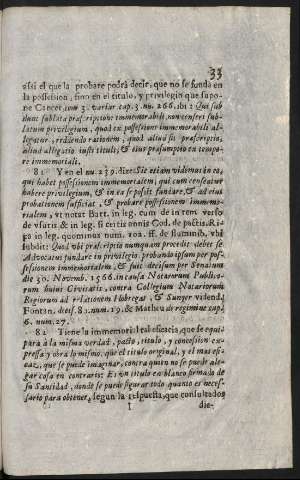 33
assi el que la probare podrá decir, que no se funda en
la possession, sino en el titulo, y privilegio que supo-
ne Cancer, tom 3. variar. cap. 3. nu. 266. ibi: Qui sub
hunc sublata præscriptione immemorabili non censeri sub-
latum privilegium, quod ex possessione immemorabili al-
legatur, reddendo rationem, quod aliud sit præscriptio,
aliud allegatio iusti tituli, & eius præsumptio ex tempo-
re immemoriali.
81 Y en el nu. 239. dize: Sic etiam vidimus in eo,
qui habet possessionem immemorialem, qui cum censeatur
habere privilegium, & in eo se possit fundare, & ad eius
probationem sufficiat, & probare possessionem immemo-
rialem, ut notat Bart. in leg. cum de in rem verso
de usuris & in leg. si certis annis Cod. de pactis, Ri-
pa in leg. quominus num. 102. ff. de fluminib, ubi
subdit: Quod ubi præscriptio nunquam procedit debet se
Advocatus fundare in privilegio probando ipsum per pos-
sessionem immemorialem, & fuit decisum per Senatum
die 30. Novemb. 1566. in causa Notariorum Publico-
rum huius Civitatis, contra Collegium Notariorum
Regiorum ad relationem Hobregat, & Sunyer vidend.
Fontan. decis. 83. num. 19. & Matheu de regimine cap.
6. num. 27.
82 Tiene la immemorial tal eficacia, que se equi-
para à la misma verdad, pacto, titulo, y concession ex-
pressa y obra lo mismo, que el titulo original, y el mas efi-
caz, que se puede imaginar, contra quien no se puede ale-
gar cosa en contrario: Es un titulo en blanco firmado de
su Santidad, donde se puede figurar todo quanto es neces-
sario para obtener, segun la respuesta, que consultados
I die-